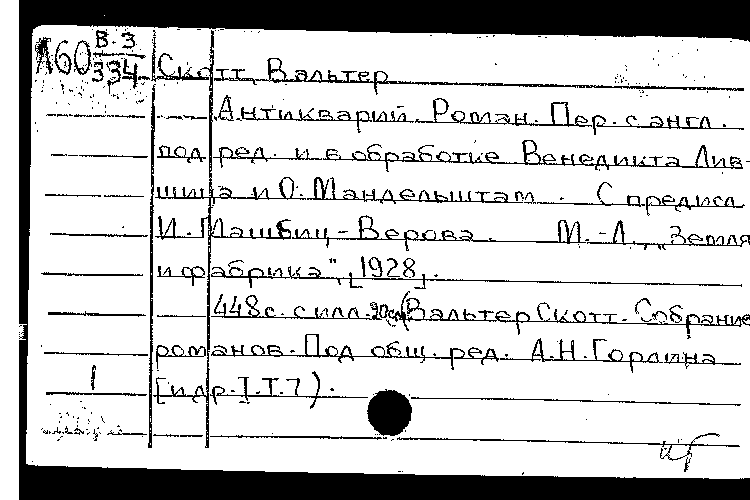 Л60 В.3
334
Скотт, Вальтер
Антикварий. Роман. Пер. с англ.
под ред. и в обработке Венедикта Лив-
шица и О. Мандельштам. С предисл
И. Машбиц-Верова. М.-Л., "Земля
и фабрика", [1928].
448с. с илл. 20см (Вальтер Скотт. Собрание
романов. Под общ. ред. А.Н.Горлина
1
[и др.]. Т.7).